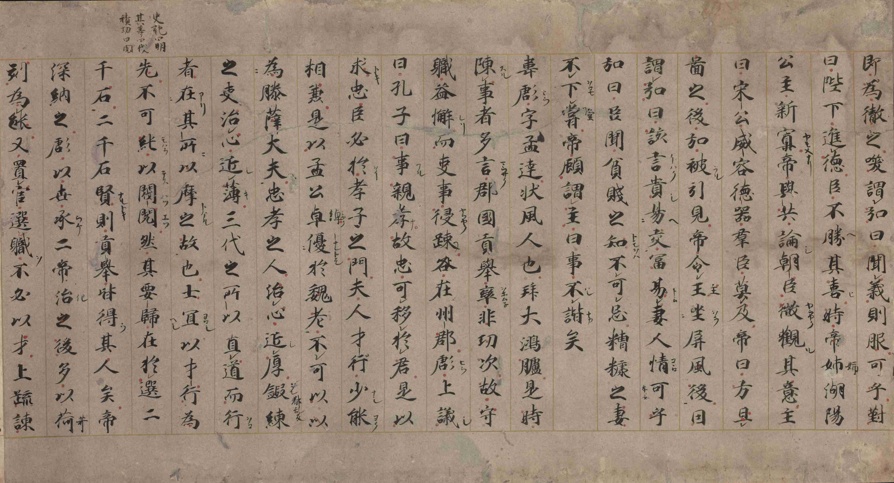 即為徹之喚謂弘曰聞義則服可乎對
曰陛下進德臣不勝其喜時帝姉湖陽
公主新寡帝與共論朝臣微觀其意主
曰宋公威容德器羣臣莫及帝曰方且
啚之後弘被引見帝令主坐屏風後因
謂弘曰諺言貴易交富易妻人情可乎
弘曰臣聞貧賤之知不可忘糟糠之妻
不下堂帝顧謂主曰事不諧矣
韋彪字孟達扶風人也拜大鴻臚是時
陳事者多言郡國貢舉率非功次故守
職益懈而吏事侵踈咎在州郡彪上議
曰孔子曰事親孝故忠可移於君是以
求忠臣必於孝子之門夫人才行少能
相兼是以孟公卓優於魏老不可以以
為滕薛大夫忠孝之人治心近厚鍛練
之吏治心近薄三代之所以直道而行
者在其所以磨之故也士冝以才行為
先不可純以閥閱然其要歸在於選二
千石二千石賢則貢舉皆得其人矣帝
深納之彪以世承二帝治之後多以苛
刻為能又置官選職不必以才上疏諫